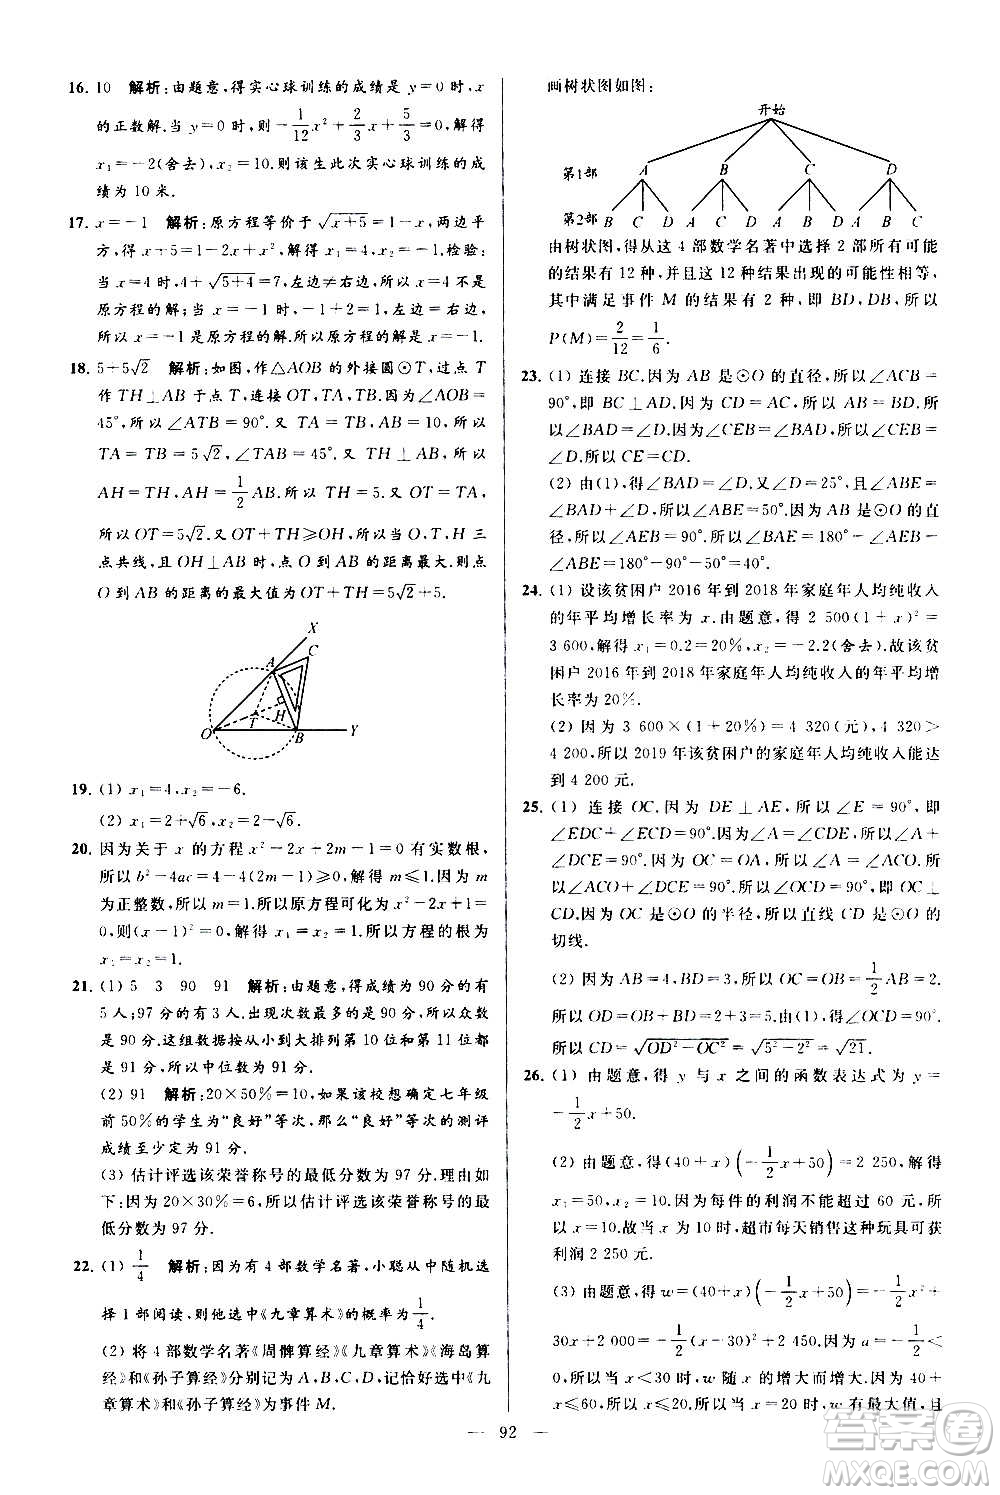 16. 10 解析:由题意,得实心球训练的成绩是 y=0 时,x
的正数解.当 y=0 时,则-1/12x²+2/3x+5/3=0,解得
x₁=-2(舍去),x₂=10.则该生此次实心球训练的成
绩为 10 米.
17. x=-1 解析:原方程等价于√(x+5)=1-x,两边平
方,得 x+5=1-2x+x²,解得 x₁=4,x₂=-1.检验:
当 x=4 时,4+√(5+4)=7,左边≠右边,所以 x=4 不是
原方程的解.当 x=-1 时,-1+√(5-1)=1,左边=右边,
所以 x=-1 是原方程的解.所以原方程的解是 x=-1.
18. 5+5√2 解析:如图,作△AOB 的外接圆⊙T,过点 T
作 TH⊥AB 于点 T,连接 OT,TA,TB.因为∠AOB=
45°,所以∠ATB=90°.又 TA=TB,AB=10,所以
TA=TB=5√2,∠TAB=45°.又 TA⊥AB,所以
AH=TH,AH=1/2AB.所以 TH=5.又 OT=TA,
所以 OT=5√2.又 OT+TH≥OH,所以当 O,T,H 三
点共线,且点 T 在 OH 上时,点 O 到 AB 的距离最大.所以点
O 到 AB 的距离的最大值为 OT+TH=5√2+5.
X
A
C
T
H
O
B
Y
19. (1) x₁=4,x₂=-6.
(2) x₁=2+√6,x₂=2-√6.
20. 因为关于 x 的方程 x²-2x+2m-1=0 有实数根,
所以 b²-4ac=4-4(2m-1)≥0,解得 m≤1.因为 m
为正整数,所以 m=1.所以原方程可化为 x²-2x+1=
0,则(x-1)²=0,解得 x₁=x₂=1.所以方程的根为
x₁=x₂=1.
21. (1) 5 3 90 91 解析:由题意,得成绩为 90 分的有
5 人;97 分的有 3 人.出现次数最多的是 90 分,所以众数
是 90 分.这组数据按从小到大排列第 10 位和第 11 位都
是 91 分,所以中位数为 91 分.
(2) 91 解析:20×50%=10,如果该校想确定七年级
前 50%的学生为“良好”等次,则“良好”等次的测评
成绩至少定为 91 分.
(3) 估计评选该荣誉称号的最低分数为 97 分.理由如
下:因为 20×30%=6,所以估计评选该荣誉称号的最
低分数为 97 分.
22. (1) 1/4 解析:因为有 4 部数学名著,小聪从中随机选
择 1 部阅读,则他选中《九章算术》的概率为1/4.
(2) 将 4 部数学名著《周髀算经》《九章算术》《海岛算
经》和《孙子算经》分别记为 A,B,C,D,记恰好选中《九
章算术》和《孙子算经》为事件 M.
画树状图如图:
开始
第1部 A B C D
第2部 B C D A C D A B D A B C
由树状图,得从这 4 部数学名著中选择 2 部所有可能
的结果有 12 种,并且这 12 种结果出现的可能性相等,
其中满足事件 M 的结果有 2 种,即 BD,DB,所以
P(M)=2/12=1/6.
23. (1) 连接 BC.因为 AB 是⊙O 的直径,所以∠ACB=
90°,即 BC⊥AD.因为 CD=AC,所以 AB=BD.所
以∠BAD=∠D.因为∠CEB=∠BAD,所以∠CEB=
∠D.所以 CE=CD.
(2) 由(1),得∠BAD=∠D.又∠D=25°,∠ABE=
∠BAD+∠D,所以∠ABE=50°.因为 AB 是⊙O 的直
径,所以∠AEB=90°.所以∠BAE=180°-∠AEB-
∠ABE=180°-90°-50°=40°.
24. (1) 设该贫困户 2016 年到 2018 年家庭年人均纯收入
的年平均增长率为 x.由题意,得 2 500(1+x)²=
3 600,解得 x₁=0.2=20%,x₂=-2.2(舍去).故该贫
困户 2016 年到 2018 年家庭年人均纯收入的年平均增
长率为 20%.
(2) 因为 3 600×(1+20%)=4 320(元),4 320>
4 200,所以 2019 年该贫困户的家庭年人均纯收入能达
到 4 200 元.
25. (1) 连接 OC.因为 DE⊥AE,所以∠E=90°,即
∠EDC+∠ECD=90°.因为∠A=∠CDE,所以∠A+
∠DCE=90°.因为 OC=OA,所以∠A=∠ACO.所
以∠ACO+∠DCE=90°.所以∠OCD=90°,即 OC⊥
CD.因为 OC 是⊙O 的半径,所以直线 CD 是⊙O 的
切线.
(2) 因为 AB=4,BD=3,所以 OC=OB=1/2AB=2.
所以 OD=OB+BD=2+3=5.由(1),得∠OCD=90°,
所以 CD=√(OD²-OC²)=√(5²-2²)=√21.
26. (1) 由题意,得 y 与 x 之间的函数表达式为 y=
-1/2x+50.
(2) 由题意,得(40+x)(-1/2x+50)=2 250,解得
x₁=50,x₂=10.因为每件的利润不能超过 60 元,所
以 x=10.故当 x 为 10 时,超市每天销售这种玩具可获
利润 2 250 元.
(3) 由题意,得 w=(40+x)(-1/2x+50)=-1/2x²+
30x+2 000=-1/2(x-30)²+2 450.因为 a=-1/2<
0,所以当 x<30 时,w 随 x 的增大而增大.因为 40+
x≤60,所以 x≤20.所以当 x=20 时,w 有最大值,且
— 92 —
答案圈
MXQE.COM